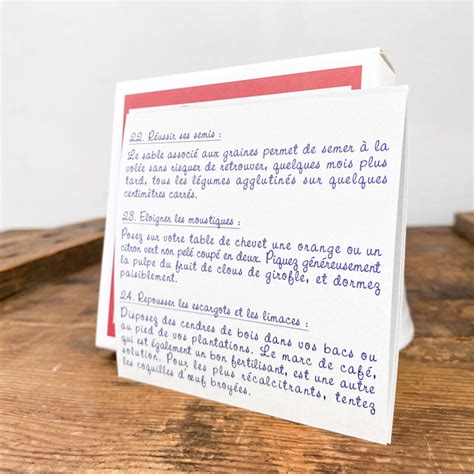 22. Réussir ses semis :
Le sable associé aux graines permet de semer à la
volée sans risquer de retrouver, quelques mois plus
tard, tous les légumes agglutinés sur quelques
centimètres carrés.
23. Eloigner les moustiques :
Posez sur votre table de chevet une orange ou un
citron vert non pelé coupé en deux. Piquez généreusement
la pulpe du fruit de clous de girofle, et dormez
paisiblement.
24. Repousser les escargots et les limaces :
Disposez des cendres de bois dans vos bacs ou
au pied de vos plantations. Le marc de café,
qui est également un bon fertilisant, est une autre
solution. Pour les plus récalcitrants, tentez
les coquilles d'œuf broyées.